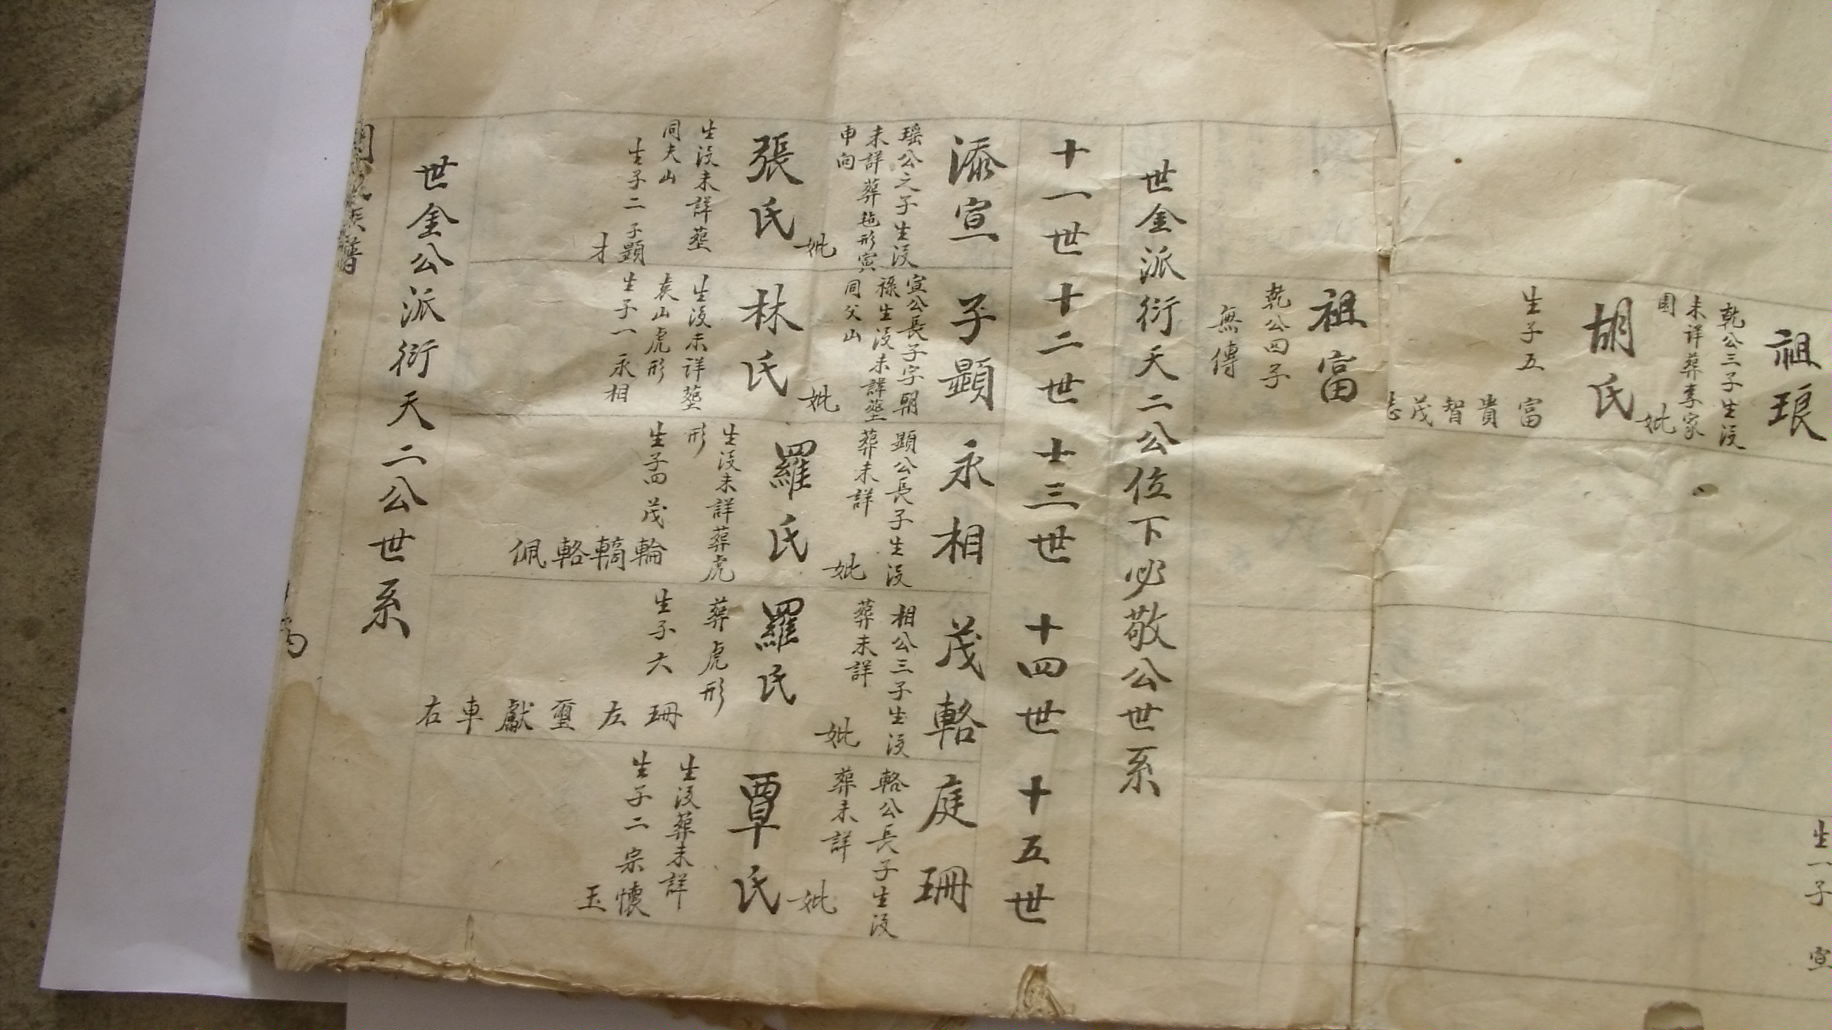 祖琅
乾公三子生没
未詳葬李家
園
妣
胡氏
生子五
富
貴
智
茂
生一子
宣
祖富
乾公四子
無傳
世金派衍天二公位下必敬公世系
十一世
十二世
十三世
十四世
十五世
添宣
瑶公之子生没
未詳葬形寅
申向
妣
張氏
生没未詳葬
同夫山
生子二子顯
才
子顯
宣公長子字朝
祿生没未詳葬
同父山
妣
林氏
生没未詳葬
袁山虎形
生子一永相
永相
顯公長子生没
葬未詳
妣
羅氏
生没未詳葬虎
形
生子四茂
輪
轎
輅
佩
茂輅
相公三子生没
葬未詳
妣
羅氏
葬虎形
生子六
珊
左
璽
獻
車
右
庭珊
輅公長子生没
葬未詳
妣
覃氏
生没葬未詳
生子二宗懷
玉
世金公派衍天二公世系
氏族譜